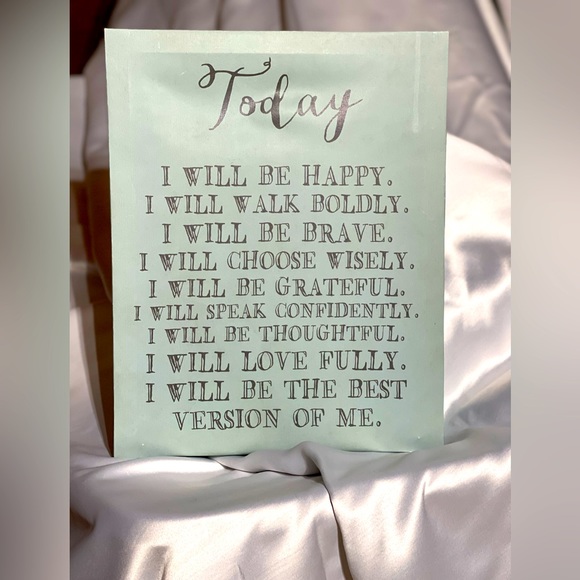 Today
I WILL BE HAPPY.
I WILL WALK BOLDLY.
I WILL BE BRAVE.
I WILL CHOOSE WISELY.
I WILL BE GRATEFUL.
I WILL SPEAK CONFIDENTLY.
I WILL BE THOUGHTFUL.
I WILL LOVE FULLY.
I WILL BE THE BEST
VERSION OF ME.